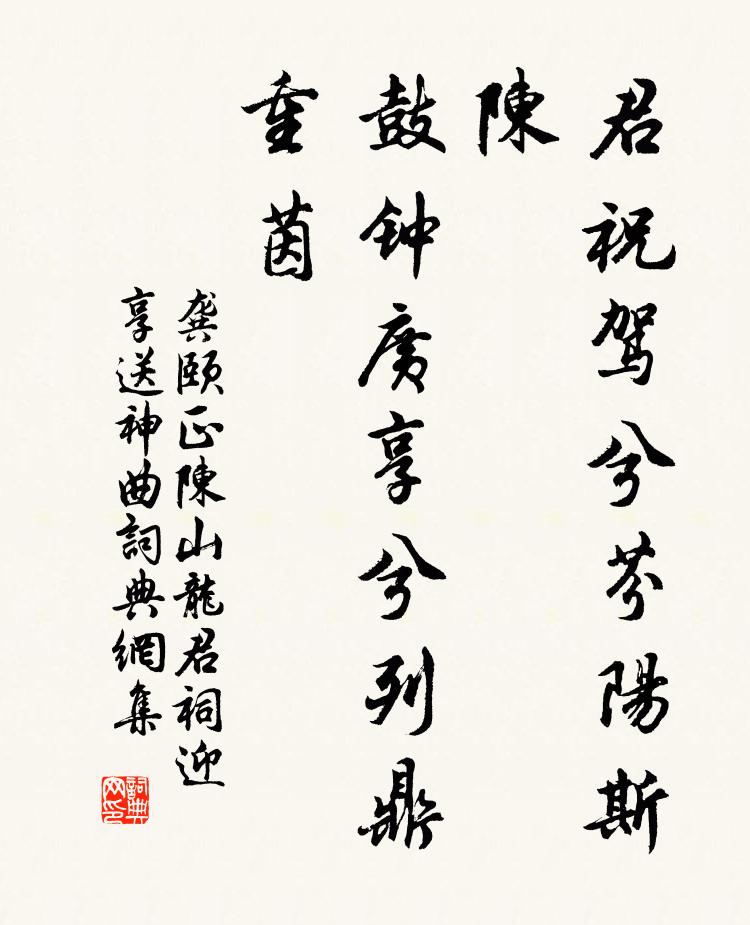 君祝駕兮芬陽斯
陳
鼓钟廣享兮列鼎
重茵
龔頤正陳山龍君祠迎
享送神曲詞典網集
詞典网印